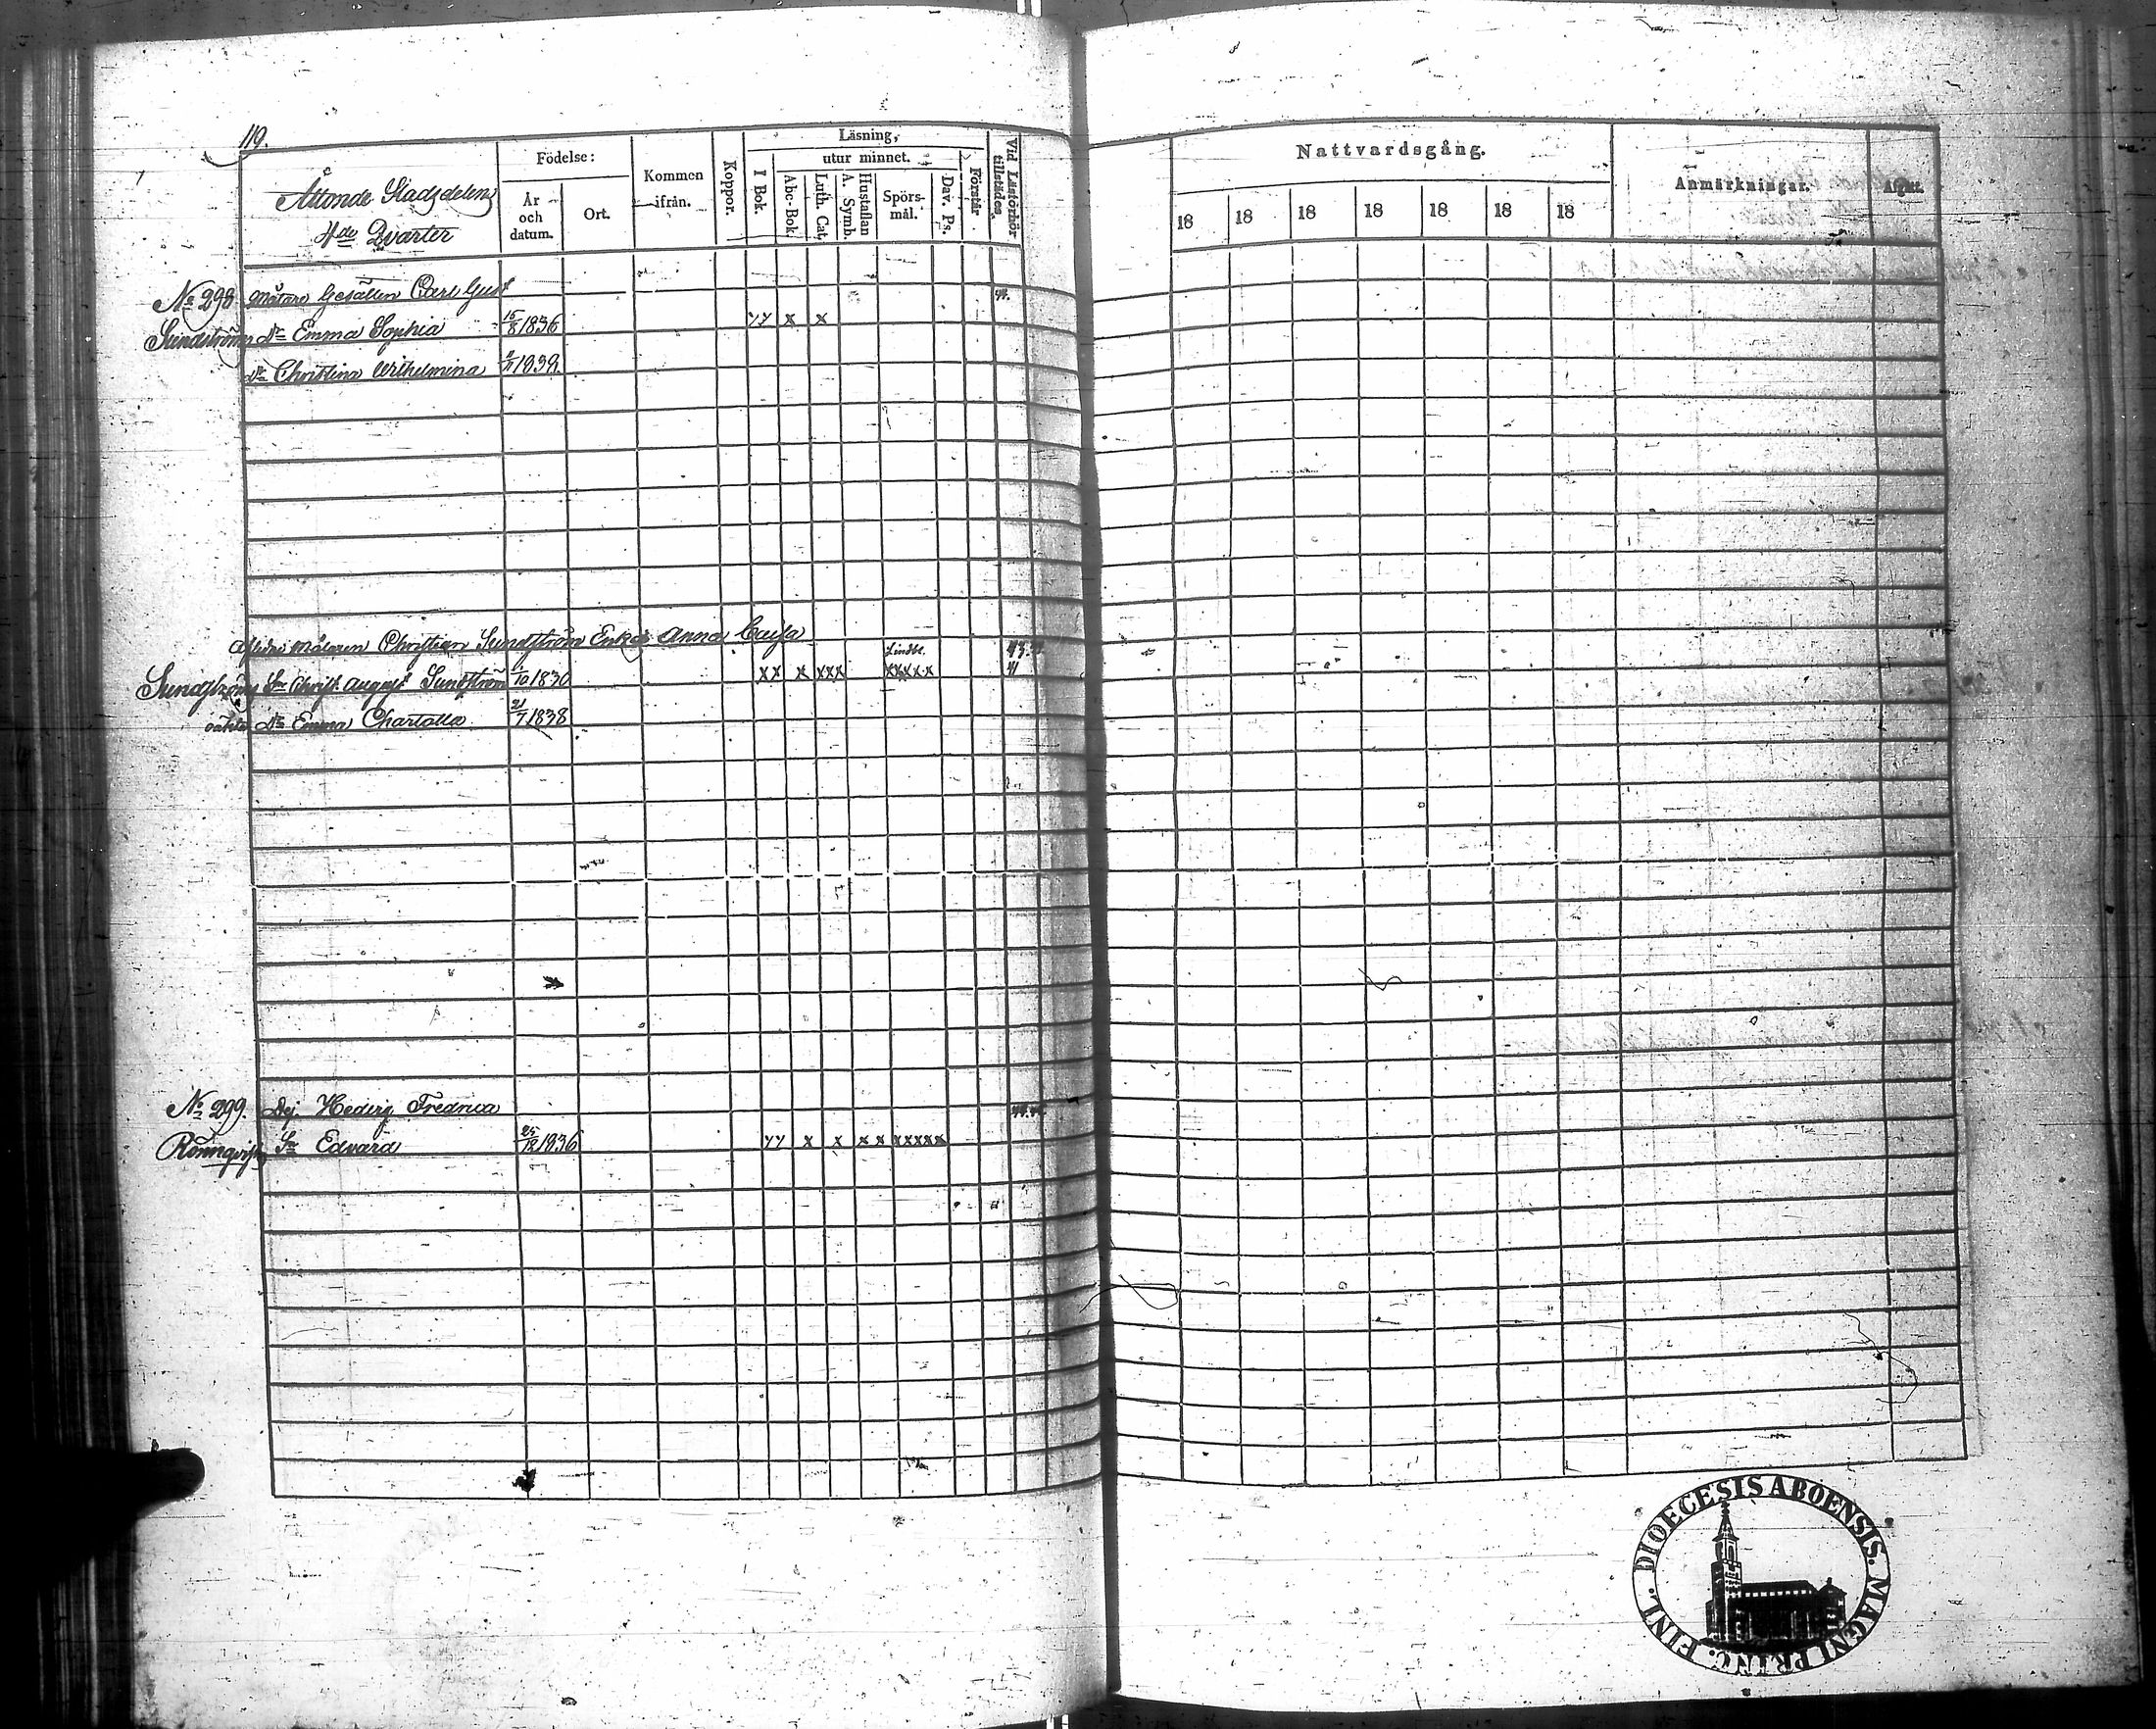 119.
Åttonde Stadsdelens
4de Qvarter
Födelse:
År och datum.
Ort.
Kommen ifrån.
Koppor.
Läsning,
I Bok.
utur minnet.
Abc-Bok.
Luth. Cat.
A. Symb.
Hustaflan
Spörs-mål.
Dav. Ps.
Förstår
Vid Läsförhör tillstädes
Nattvardsgång.
18 18 18 18 18 18 18
Anmärkningar.
No 298 Målare Gesällen Carl Gust 44.
Sundström Dr Emma Sophia 15/8 1836 YY x x
Dr Christina Wilhelmina 1839
Målaren Christian Sundström Enka Anna Cajsa
Lindst. 43.
Sundström Sn Christ. August Sundström 1/10 1830 xx x xxx xxxxx 41
oäkta Dr Emma Charlotta 21/7 1838
No 299. Pig. Hedvig Fredrica
Rönnqvist Sn Edvard 25/12 1836 YY x x x x xxxxx
DIOECESIS ABOENSIS. MAGNI PRINC. FINL.